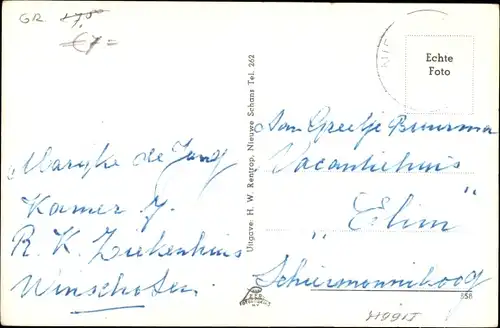 GR 17,50
€7=
Echte
Foto
Marijke de Jong
Kamer 7.
R. K. Ziekenhuis
Winschoten.
Uitgave: H. W. Rentrop, Nieuwe Schans Tel. 262
Aan Greetje Buurma
Vacantiehuis
"Elim"
Schiermonnikoog
858